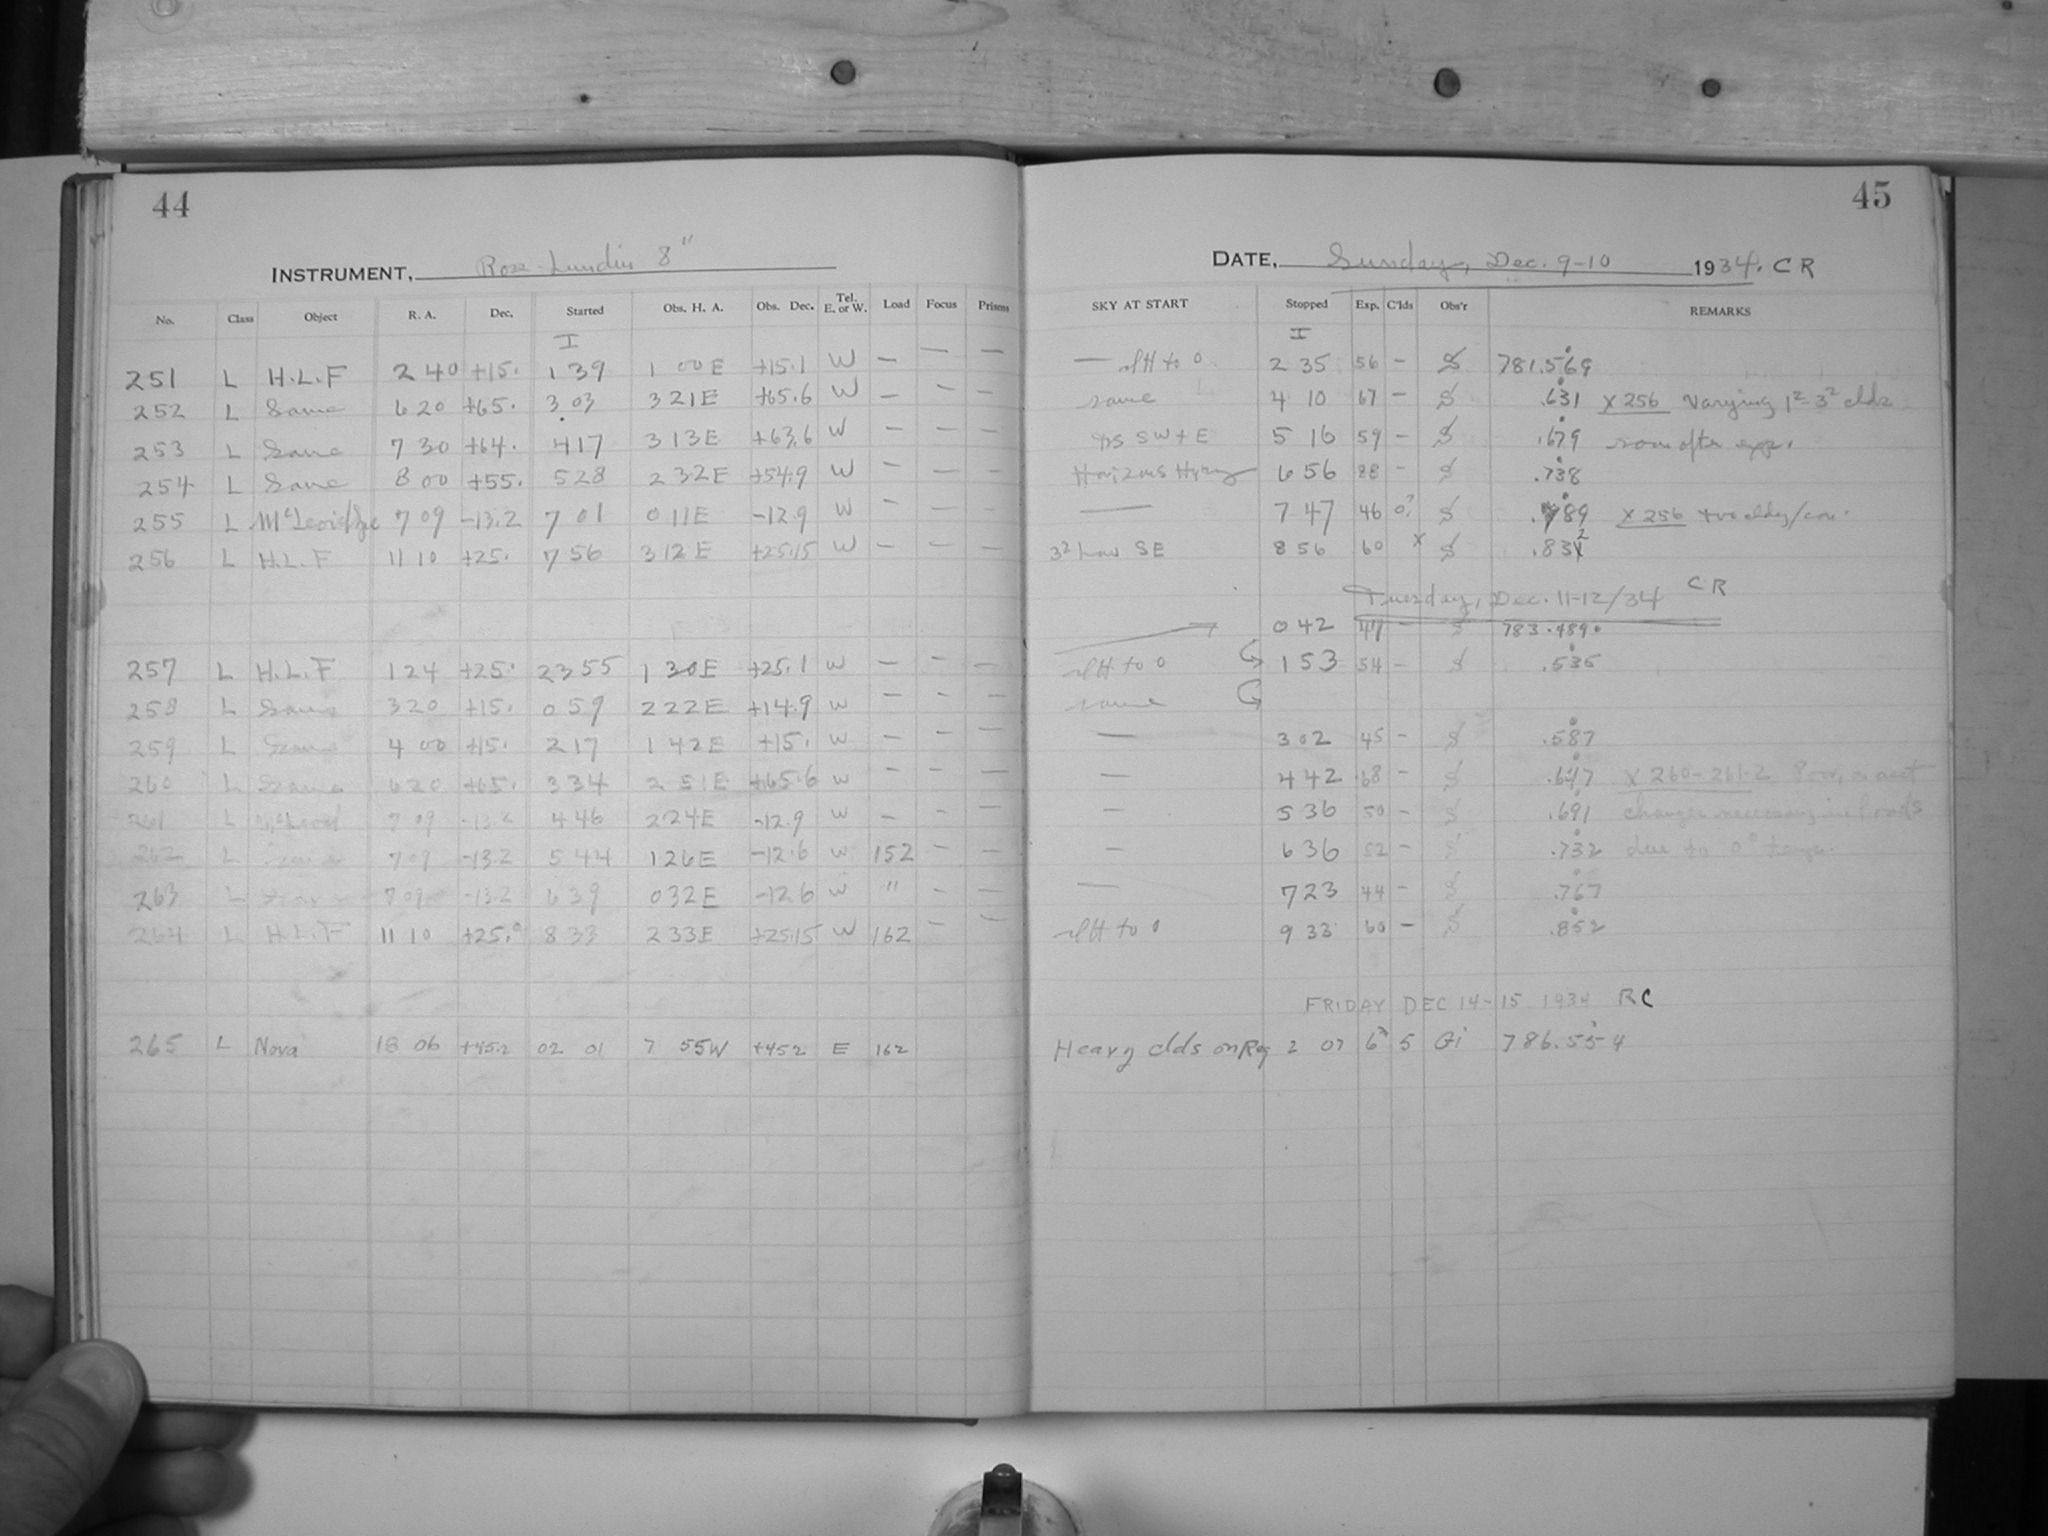 44
INSTRUMENT, Ross-Lundin 8"
No. Class Object R. A. Dec. Started Obs. H. A. Obs. Dec. Tel. E. or W. Load Focus Prisms
I
251 L H.L.F 2 40 +15. 1 39 1 00 E +15.1 W — — —
252 L Same 6 20 +65. 3 03 3 21 E +65.6 W — — —
253 L Same 7 30 +64. 4 17 3 13 E +63.6 W — — —
254 L Same 8 00 +55. 5 28 2 32 E +54.9 W — — —
255 L 7 09 -13.2 7 01 0 11 E -12.9 W — — —
256 L H.L.F 11 10 +25. 7 56 3 12 E +25.15 W — — —
257 L H.L.F 1 24 +25. 23 55 1 30 E +25.1 W — — —
258 L Same 3 20 +15. 0 59 2 22 E +14.9 W — — —
259 L Same 4 00 +15. 2 17 1 42 E +15. W — — —
260 L Same 6 20 +65. 3 34 2 51 E +65.6 W — — —
261 L 7 09 -13.2 4 46 2 24 E -12.9 W — — —
262 L Same 7 09 -13.2 5 44 1 26 E -12.6 W 152 — —
263 L Same 7 09 -13.2 6 39 0 32 E -12.6 W " — —
264 L H.L.F 11 10 +25.0 8 33 2 33 E +25.15 W 162 — —
265 L Nova 18 06 +45.2 02 01 7 55 W +45.2 E 162
45
DATE, Sunday, Dec. 9-10 1934. CR
SKY AT START Stopped Exp. C'lds Obs'r REMARKS
I
— to 0 2 35 56 — S 781.569
same 4 10 67 — S .631 X 256 Varying 1²-3² clds
SW + E 5 16 59 — S .679 soon after exp.
Horizons 6 56 88 — S .738
— 7 47 46 0? S .789 X 256
3² low SE 8 56 60 x S .832
Tuesday, Dec. 11-12/34 CR
0 42 47 — S 783.489
to 0 1 53 54 — S .535
same
— 3 02 45 — S .587
— 4 42 68 — S .647 X 260-261-2
— 5 36 50 — S .691 changes necessary in loads
— 6 36 52 — S .732 due to 0° temp.
— 7 23 44 — S .767
to 0 9 33 60 — S .852
FRIDAY DEC 14-15 1934 RC
Heavy clds on Reg 2 07 6 5 Gi 786.554